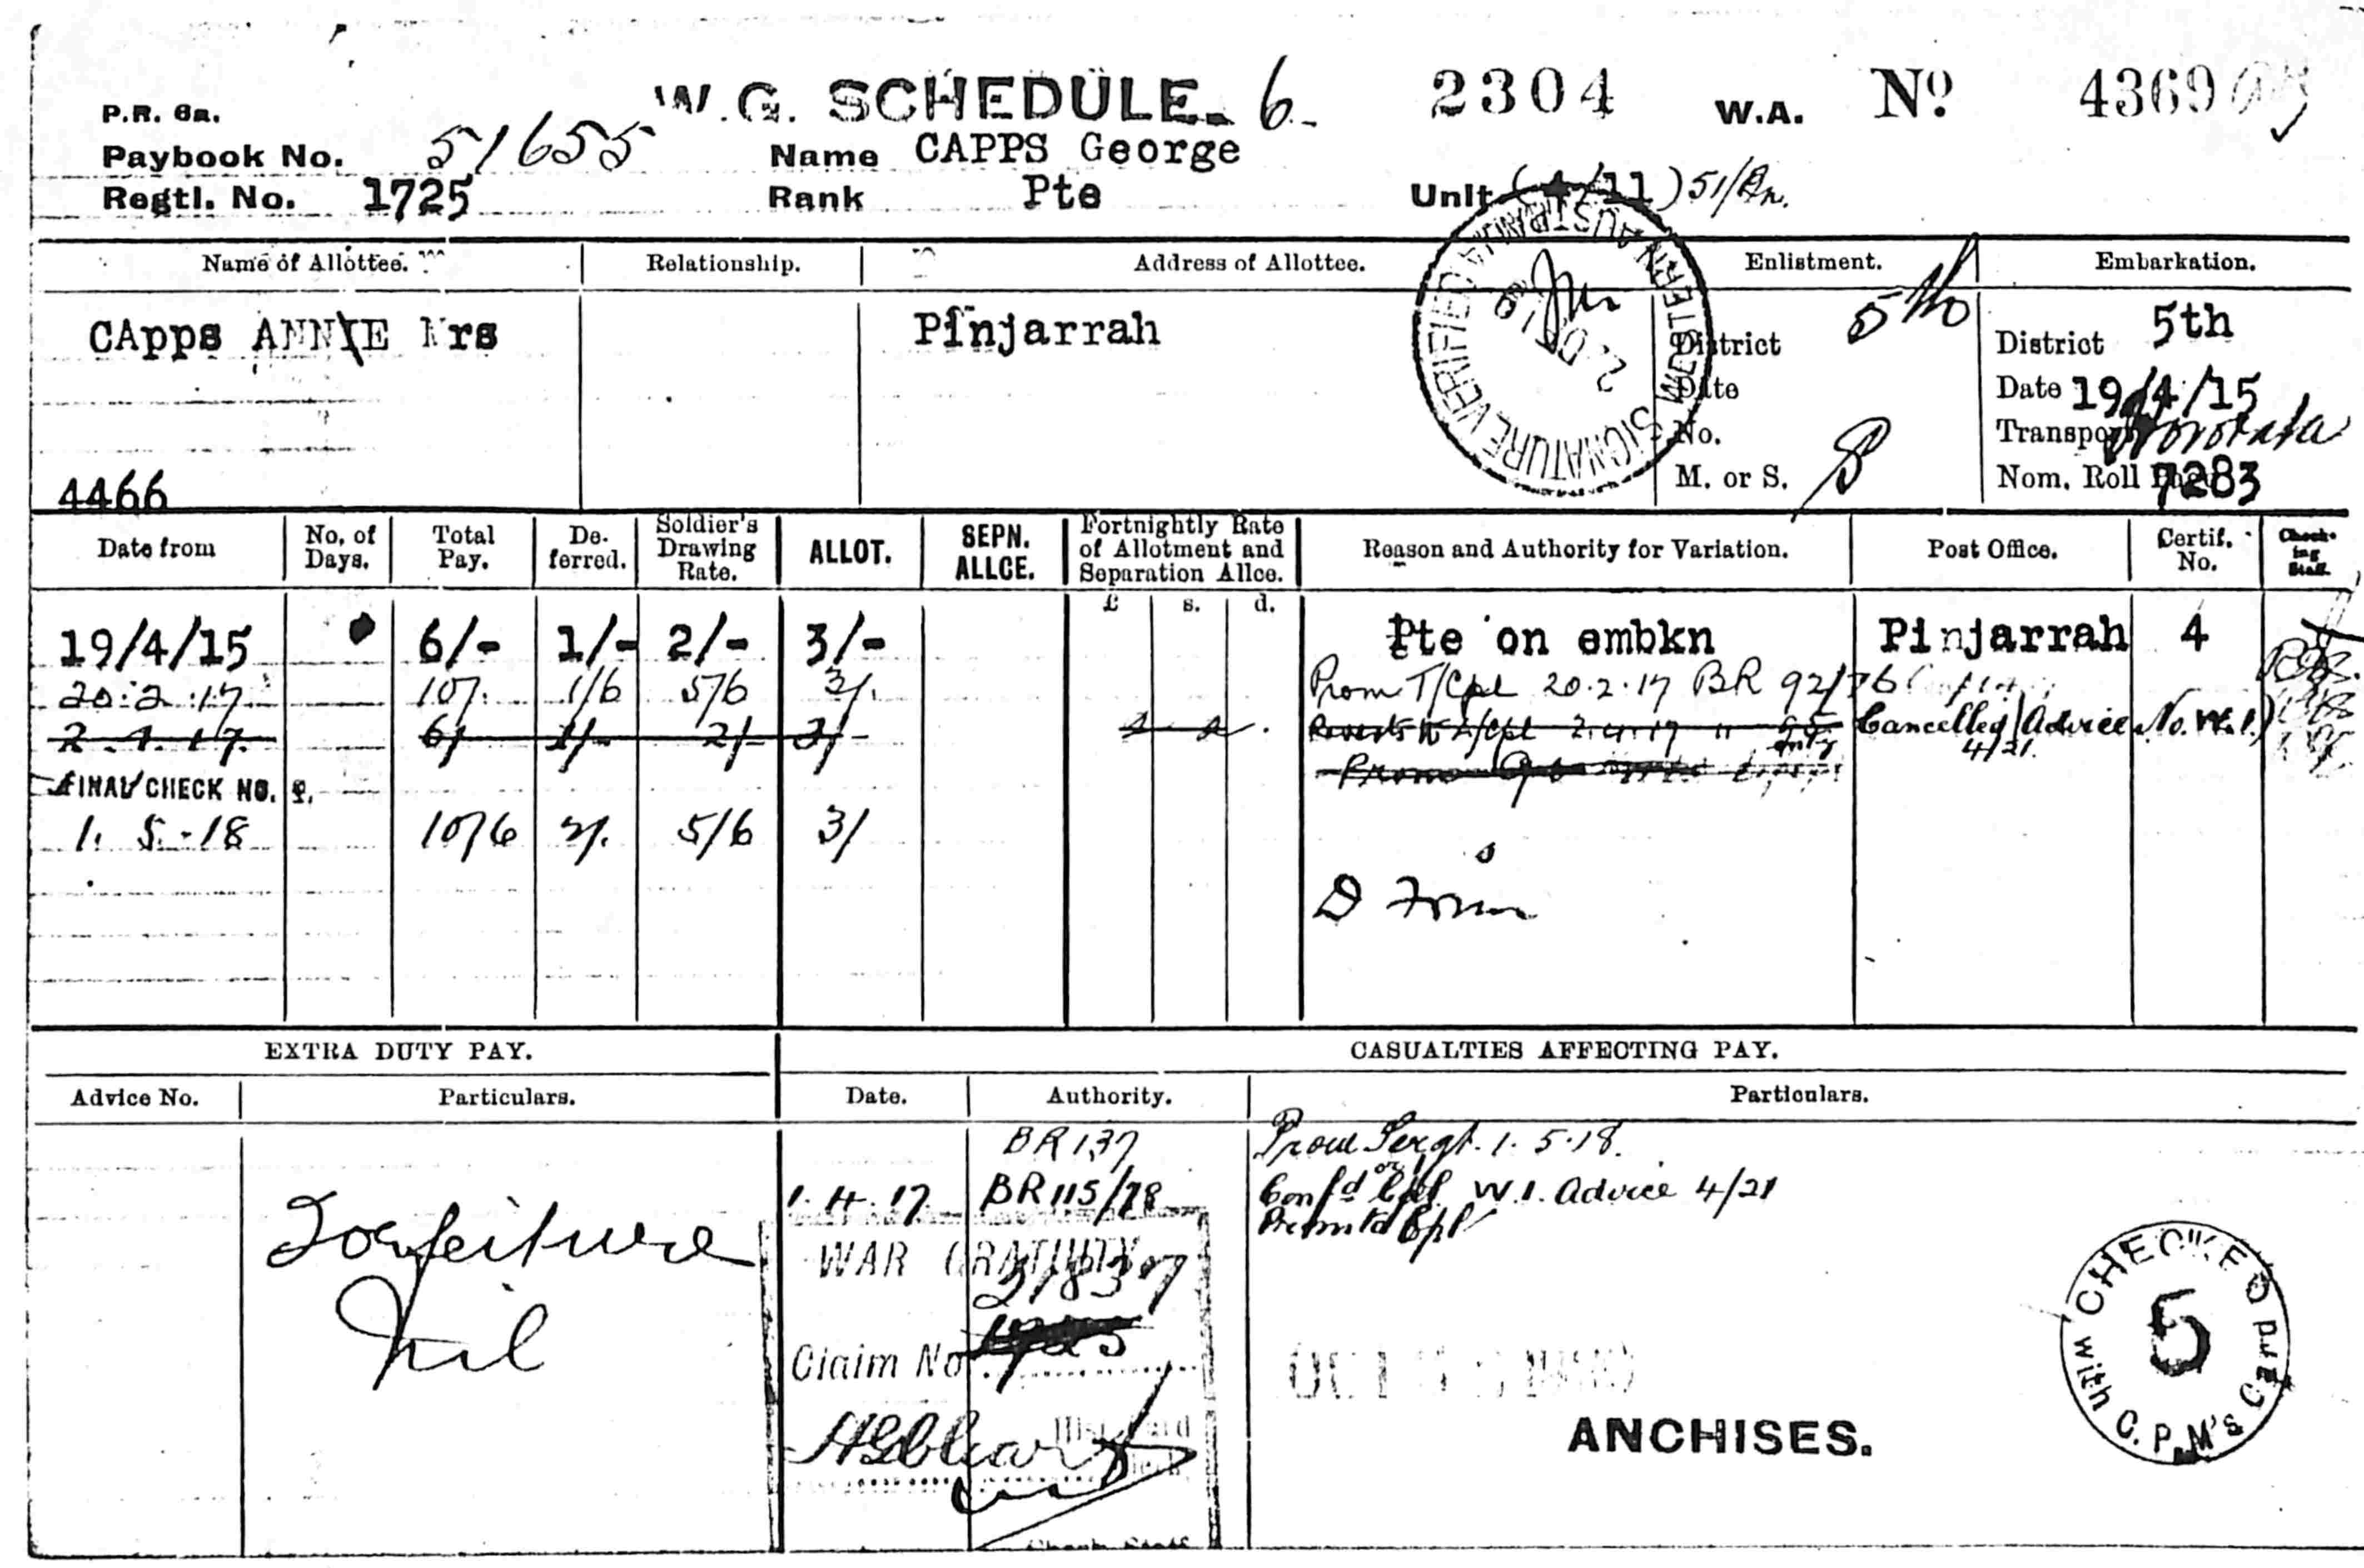 W.G. SCHEDULE. 6. 2304 W.A. Nº 4369
P.R. 6a.
Paybook No. 51655 Name CAPPS George
Regtl. No. 1725 Rank Pte Unit ( /11) 51/Bn.
Name of Allottee. Relationship. Address of Allottee. Enlistment. Embarkation.
CApps ANNIE Mrs Pinjarrah
SIGNATURE VERIFIED WESTERN AUSTRALIA
District 5th District 5th
Date Date 19/4/15
No. Transport
M. or S. Nom. Roll 7283
4466
Date from No. of Days. Total Pay. Deferred. Soldier's Drawing Rate. ALLOT. SEPN. ALLCE. Fortnightly Rate of Allotment and Separation Allce. Reason and Authority for Variation. Post Office. Certif. No. Checking Staff.
£ s. d.
19/4/15 6/- 1/- 2/- 3/- Pte on embkn Pinjarrah 4
20.2.17 10/. 1/6 5/6 3/. Prom T/Cpl 20.2.17 BR 92/76
2.4.17. 6/ 1/- 2/- 3/- Cancelled Advice No. W.1.)
4/21.
FINAL CHECK NO. 2.
1. 5.-18 10/6 2/. 5/6 3/
D Form
EXTRA DUTY PAY. CASUALTIES AFFECTING PAY.
Advice No. Particulars. Date. Authority. Particulars.
BR 137 Prom Sergt. 1.5.18.
1.4.17 BR 115/78 Conf'd Cpl W.1. Advice 4/21
Promtd Cpl
Forfeiture
Nil
WAR GRATUITY
21837
Claim No.
CHECKED with C.P.M's Card
5
ANCHISES.